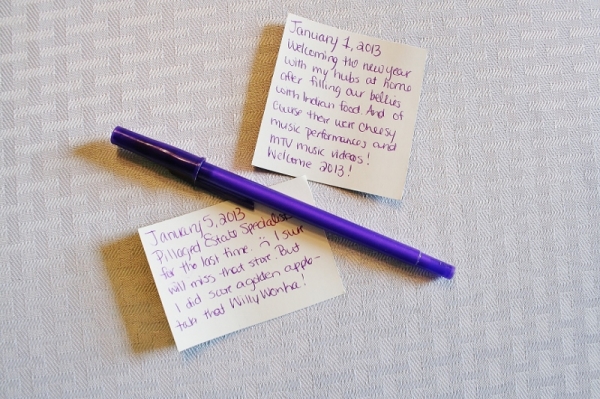 January 1, 2013
Welcoming the new year
with my hubs at home
after filling our bellies
with Indian food. And of
course their were cheesy
music performances and
MTV music videos!
Welcome 2013!
January 5, 2013
Pillaged Estate Specialists
for the last time. :( I sure
will miss that store. But
I did score a golden apple-
take that Willy Wonka!